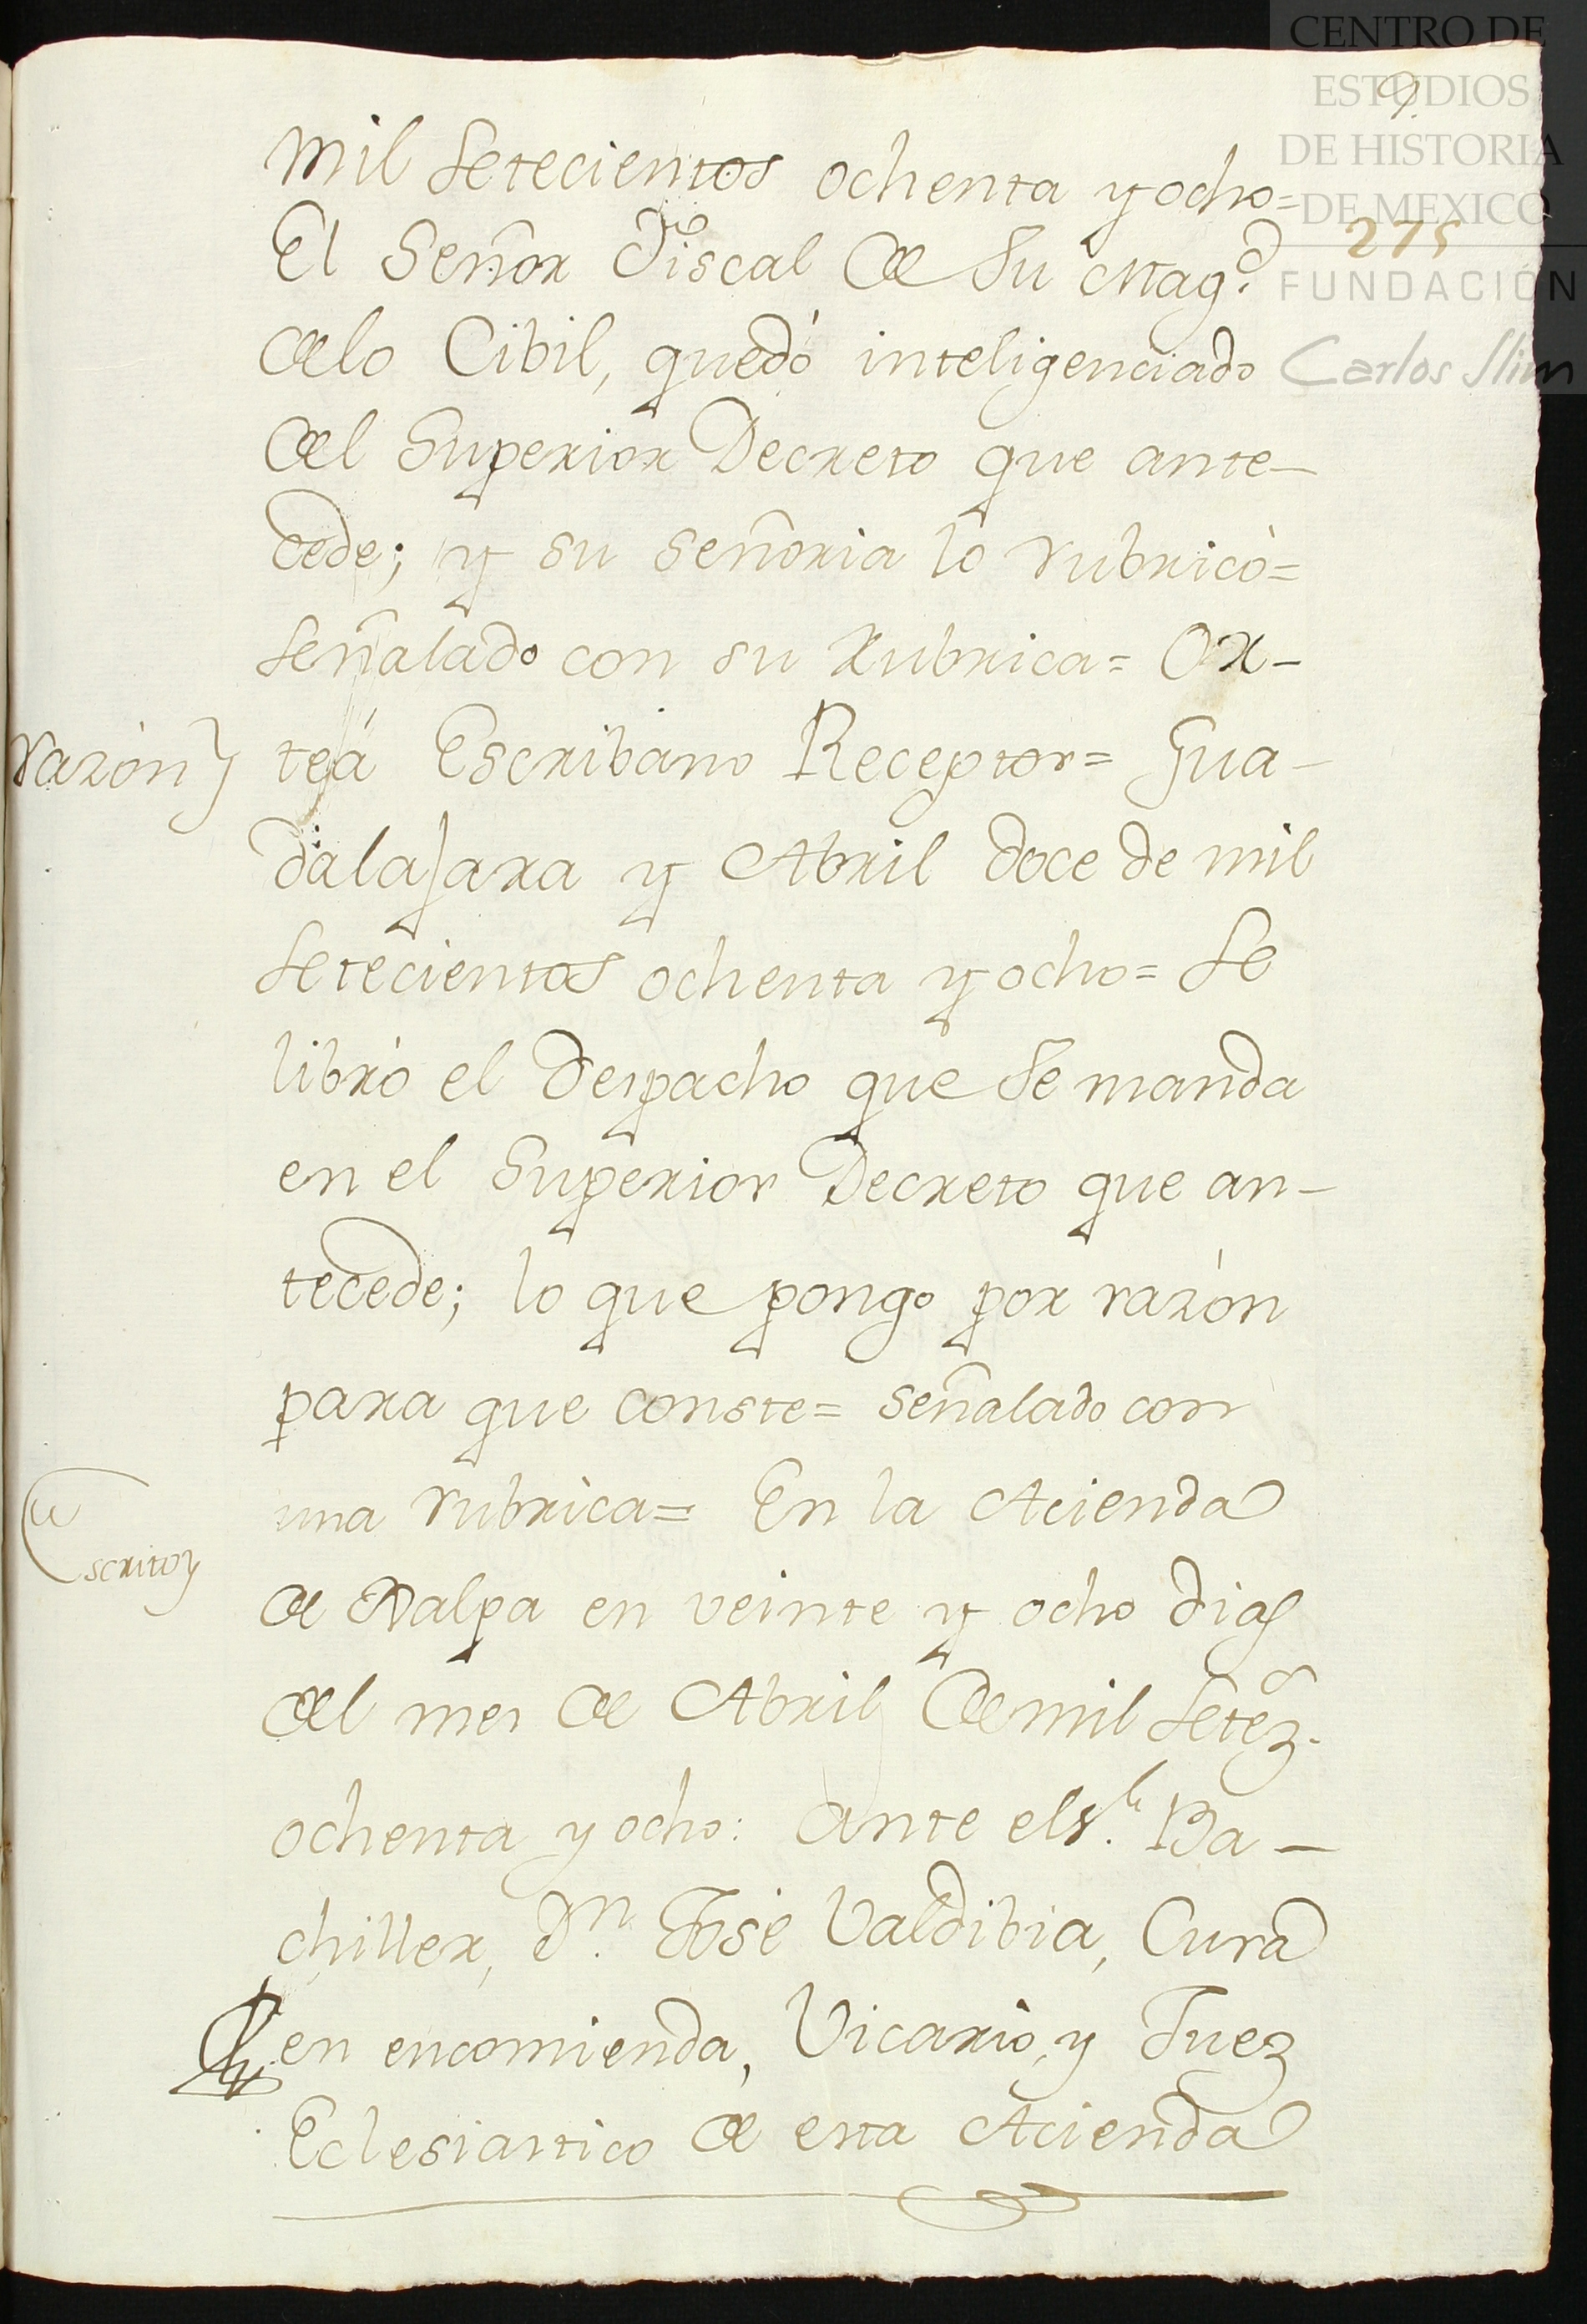 CENTRO DE
ESTUDIOS
DE HISTORIA
DE MEXICO
FUNDACIÓN
Carlos Slim
9.
275
Mil Setecientos ochenta y ocho=
El Señor Fiscal de Su Mag.d
delo Cibil, quedò inteligenciado
del Superior Decreto que ante-
cede; y su señoria lo rubricò=
Señalado con su Rubrica= Or-
razòn teá Escribano Receptor= Gua-
dalajara y Abril doce de mil
Setecientos ochenta y ocho= Se
librò el Despacho que Se manda
en el Superior Decreto que an-
tecede; lo que pongo por razòn
para que conste= señalado con
una rubrica= En la Acienda
Escrito
de Xalpa en veinte y ocho dias
del mes de Abril de mil Setez.s
ochenta y ocho: ante el s.r Ba-
chiller, D.n José Valdibia, Cura
en encomienda, Vicario, y Juez
Eclesiastico de esta Acienda